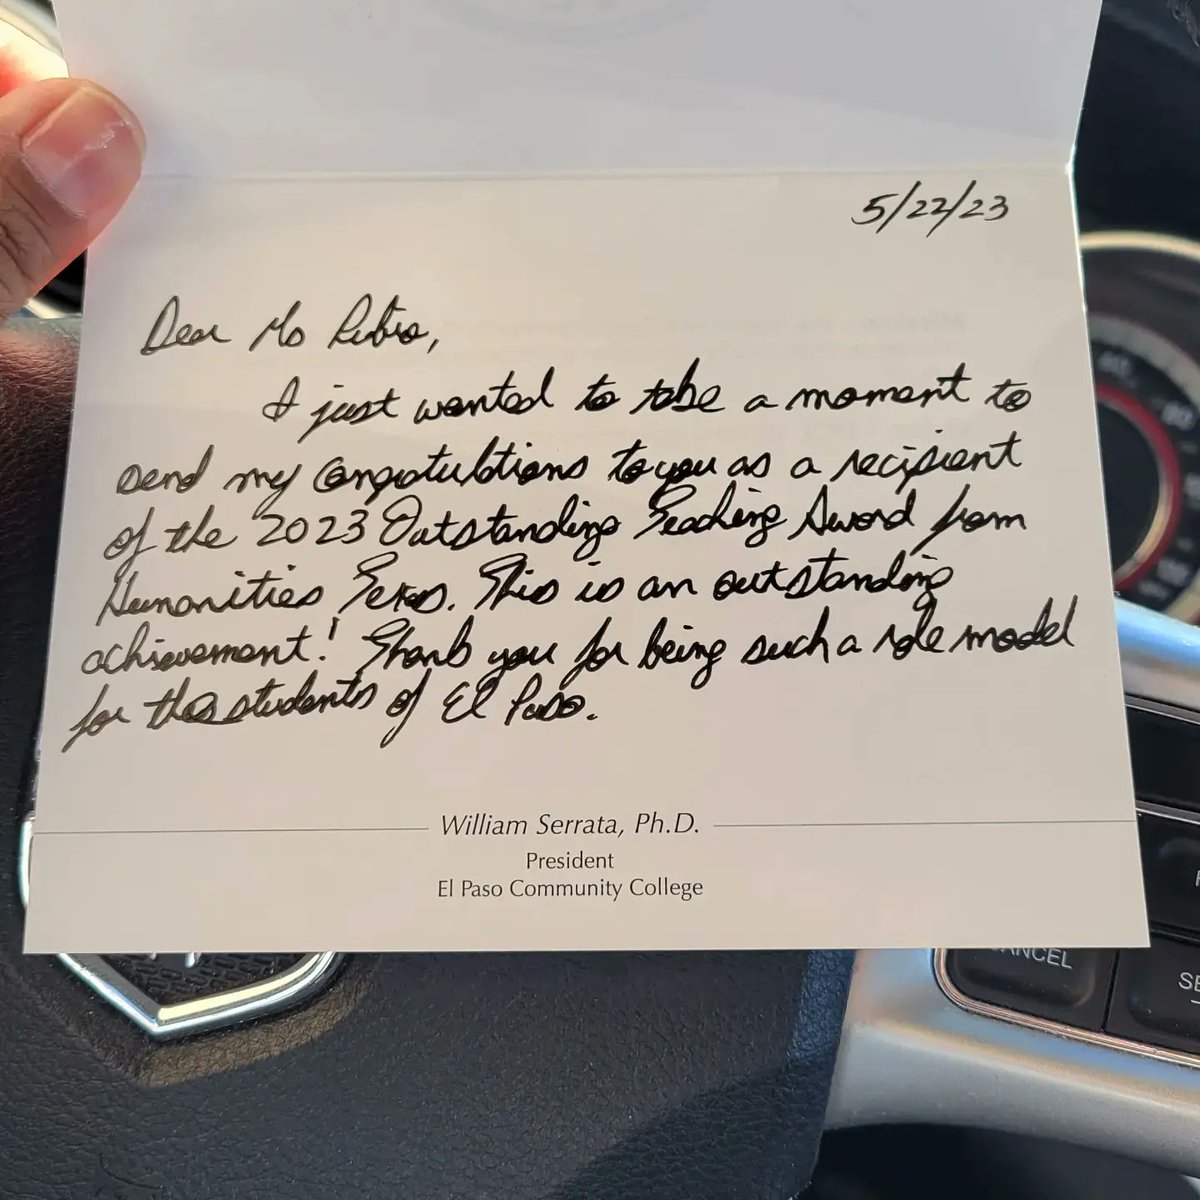 5/22/23
Dear Ms Rubio,
I just wanted to take a moment to
send my congratulations to you as a recipient
of the 2023 Outstanding Teaching Award from
Humanities Texas. This is an outstanding
achievement! Thank you for being such a role model
for the students of El Paso.
William Serrata, Ph.D.
President
El Paso Community College
CANCEL